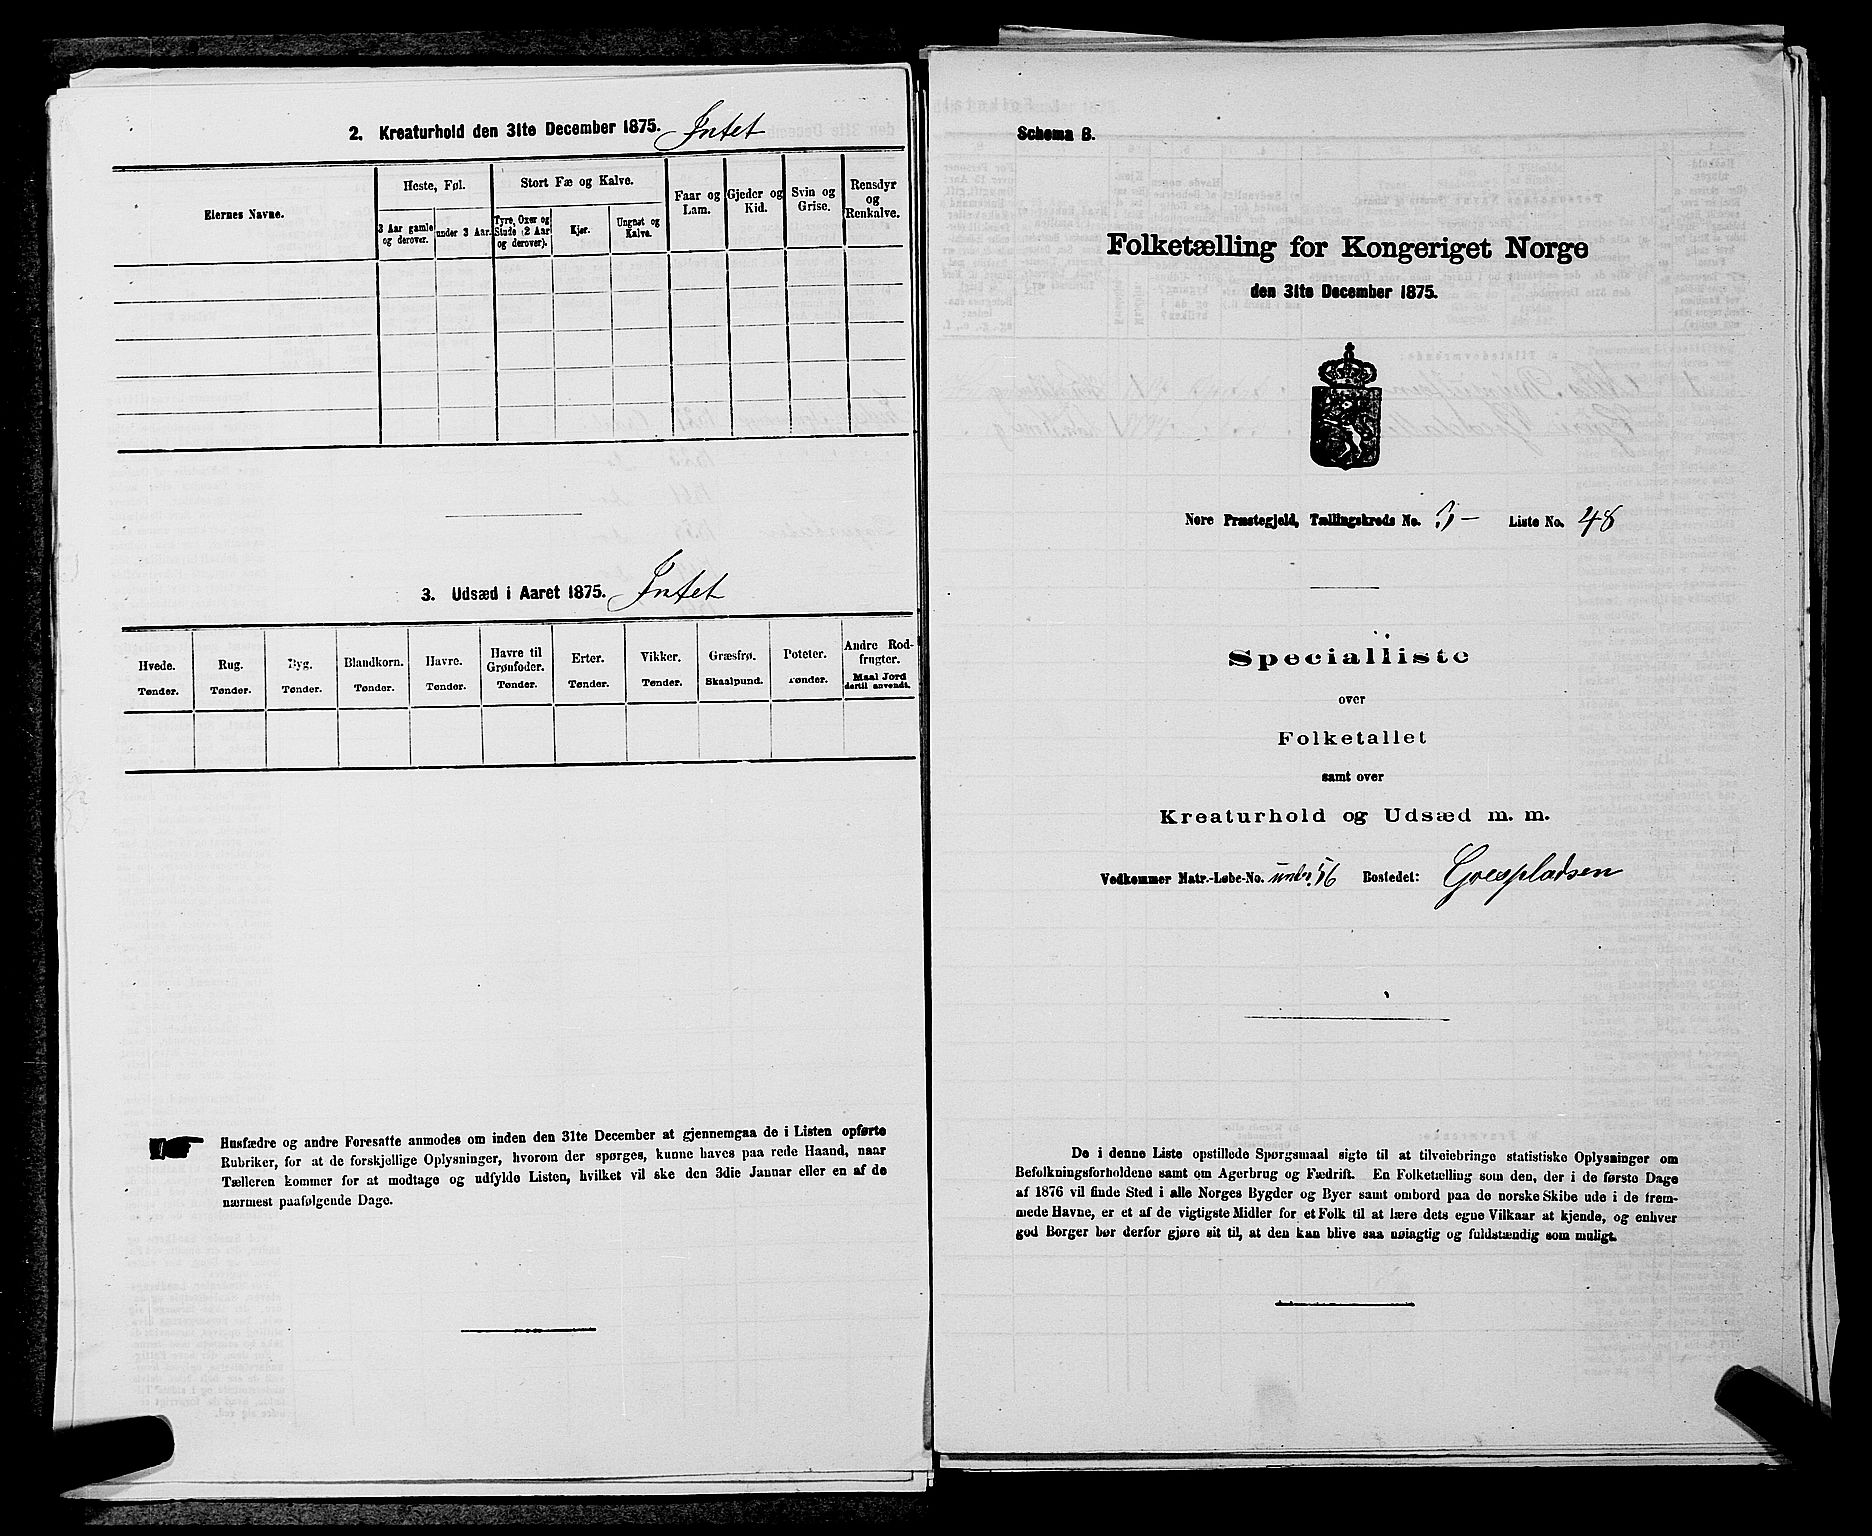 2. Kreaturhold den 31te December 1875. Intet
Eiernes Navne.
Heste, Føl.
3 Aar gamle og derover.
under 3 Aar.
Stort Fæ og Kalve.
Tyre, Oxer og Stude (2 Aar og derover).
Kjør.
Ungnøt og Kalve.
Faar og Lam.
Gjeder og Kid.
Svin og Grise.
Rensdyr og Renkalve.
3. Udsæd i Aaret 1875. Intet
Hvede. Tønder.
Rug. Tønder.
Byg. Tønder.
Blandkorn. Tønder.
Havre. Tønder.
Havre til Grønfoder. Tønder.
Erter. Tønder.
Vikker. Tønder.
Græsfrø. Skaalpund.
Poteter. Tønder.
Andre Rodfrugter. Maal Jord dertil anvendt.
Husfædre og andre Foresatte anmodes om inden den 31te December at gjennemgaa de i Listen opførte
Rubriker, for at de forskjellige Oplysninger, hvorom der spørges, kunne haves paa rede Haand, naar
Tælleren kommer for at modtage og udfylde Listen, hvilket vil ske den 3die Januar eller en af de
nærmest paafølgende Dage.
Schema B.
Folketælling for Kongeriget Norge
den 31te December 1875.
Nore Præstegjeld, Tællingskreds No. 3 - Liste No. 48
Specialliste
over
Folketallet
samt over
Kreaturhold og Udsæd m. m.
Vedkommer Matr.-Løbe-No. under 56 Bostedet: Goespladsen
De i denne Liste opstillede Spørgsmaal sigte til at tilveiebringe statistiske Oplysninger om
Befolkningsforholdene samt om Agerbrug og Fædrift. En Folketælling som den, der i de første Dage
af 1876 vil finde Sted i alle Norges Bygder og Byer samt ombord paa de norske Skibe ude i de frem-
mede Havne, er et af de vigtigste Midler for et Folk til at lære dets egne Vilkaar at kjende, og enhver
god Borger bør derfor gjøre sit til, at den kan blive saa nøiagtig og fuldstændig som muligt.